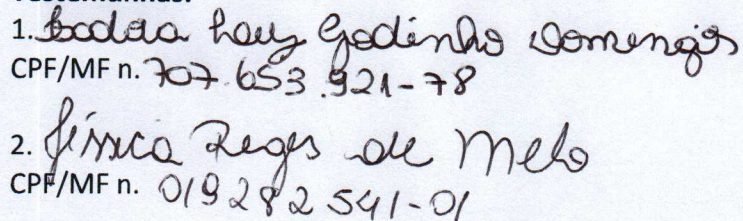 1. Godinho Domingos
CPF/MF n. 707.653.921-78
2. Jéssica Reges de Melo
CPF/MF n. 019282541-01